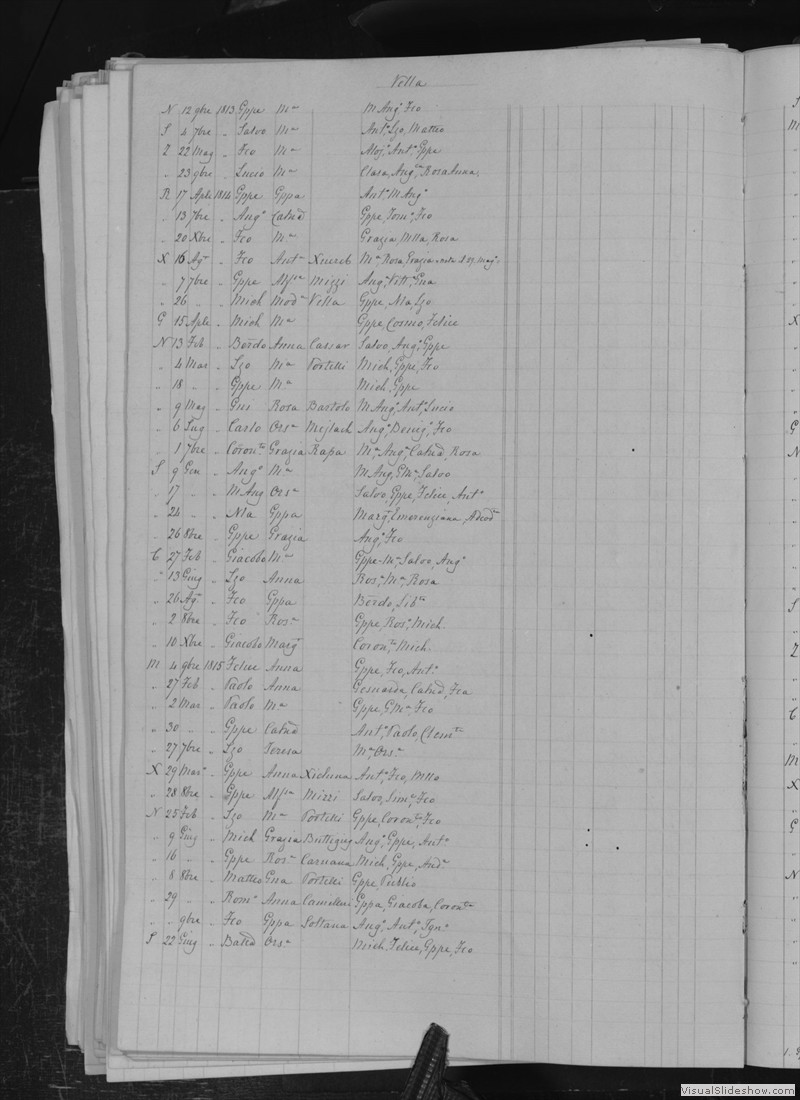 Vella
N 12 9bre 1813 Gppe Ma M Ango Fco
S 4 7bre " Salvo Ma Anto, Lzo, Matteo
Z 22 Mag " Fco Ma Aloj, Anto, Gppe
" 23 9bre " Lucio Ma Clara, Anga, Rosa Anna,
R 17 Aple 1814 Gppe Gppa Anto M Ango
" 13 7bre " Ango Catud Gppe, Tomo, Fco
" 20 Xbre " Fco Ma Grazia, Mlla, Rosa
X 16 Ago " Fco Anta Xuereb Ma Rosa, Grazia
" 7 7bre " Gppe Alfsa Mizzi Ango, Gna
" 26 " " Mich Moda Vella Gppe, Nla, Lzo
G 15 Aple " Mich Ma Gppe, Cosmo, Felice
N 13 Feb " Berdo Anna Cassar Salvo, Ango, Gppe
" 4 Mar " Lzo Ma Portelli Mich, Gppe, Fco
" 18 " " Gppe Ma Mich, Gppe
" 9 Mag " Gui Rosa Bartolo M Ango, Anto, Lucio
" 6 Lug " Carlo Orsa Mejlach Ango, Fco
" 1 7bre " Grazia Rapa Ma Anga, Catud, Rosa
S 9 Gen " Ango Ma M Ang, G Ma, Salvo
" 17 " " M Ang Orsa Salvo, Gppe, Felice, Anto
" 24 " " Nla Gppa Marga, Emerenziana,
" 26 8bre " Gppe Grazia Ango, Fco
C 27 Feb " Giacobo Ma Gppe-Ma, Salvo, Ango
" 13 Giug " Lzo Anna Rosa, Ma, Rosa
" 26 Ago " Fco Gppa Berdo,
" 2 8bre " Fco Rosa Gppe, Roso, Mich
" 10 Xbre " Giacobo Marga Mich
M 4 9bre 1815 Felice Anna Gppe, Fco, Anto
" 27 Feb " Paolo Anna Catud, Fca
" 2 Mar " Paolo Ma Gppe, G Ma, Fco
" 30 " " Gppe Catud Anto, Paolo, Clemte
" 27 7bre " Lzo Teresa Ma, Orsa
X 29 Mar " Gppe Anna Xicluna Anto, Fco, Mllo
" 28 8bre " Gppe Alfsa Mizzi Salvo, Simo, Fco
N 25 Feb " Lzo Ma Portelli Gppe, Fco
" 9 Giug " Mich Grazia Buttigieg Ango, Gppe, Anto
" 16 " " Gppe Rosa Caruana Mich, Gppe, Anda
" 8 8bre " Matteo Gna Portelli Gppe, Publio
" 29 " " Romo Anna Camelleri Gppa, Giacoba,
" " 9bre " Fco Gppa Soltana Ango, Anto, Igno
S 22 Giug " Orsa Mich, Felice, Gppe, Fco
VisualSlideshow.com